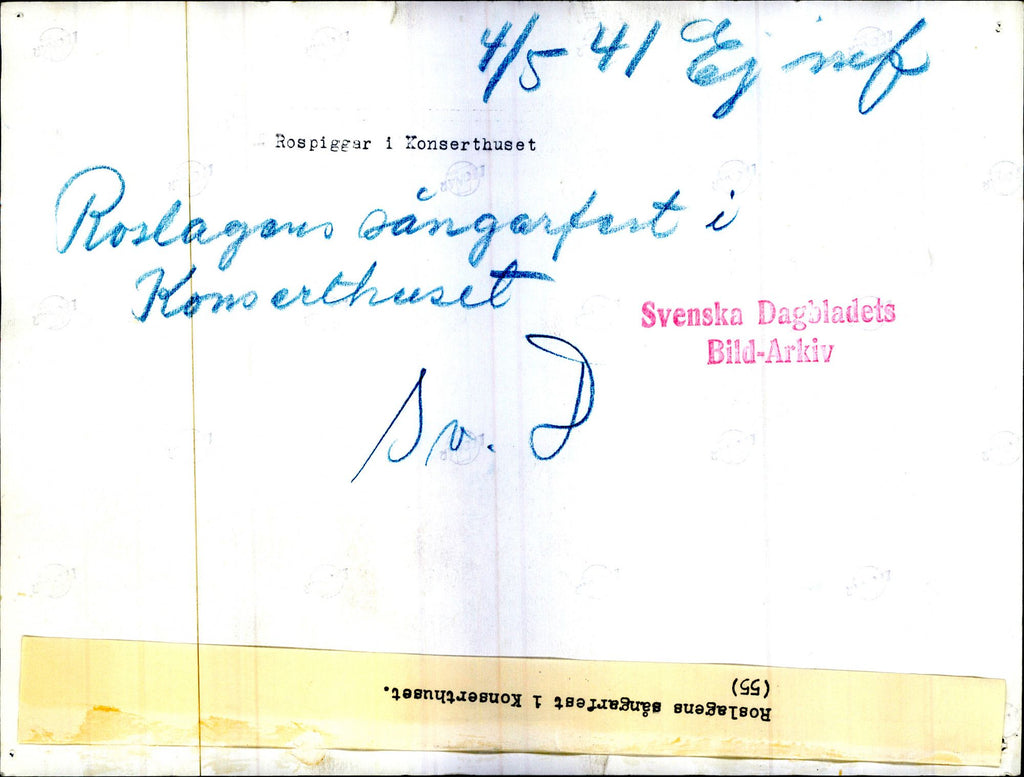 4/5 41 Ej inf
Rospiggar i Konserthuset
Roslagens sångarfest i
Konserthuset
Svenska Dagbladets
Bild-Arkiv
Sv. D
Roslagens sångarfest i Konserthuset.
(55)